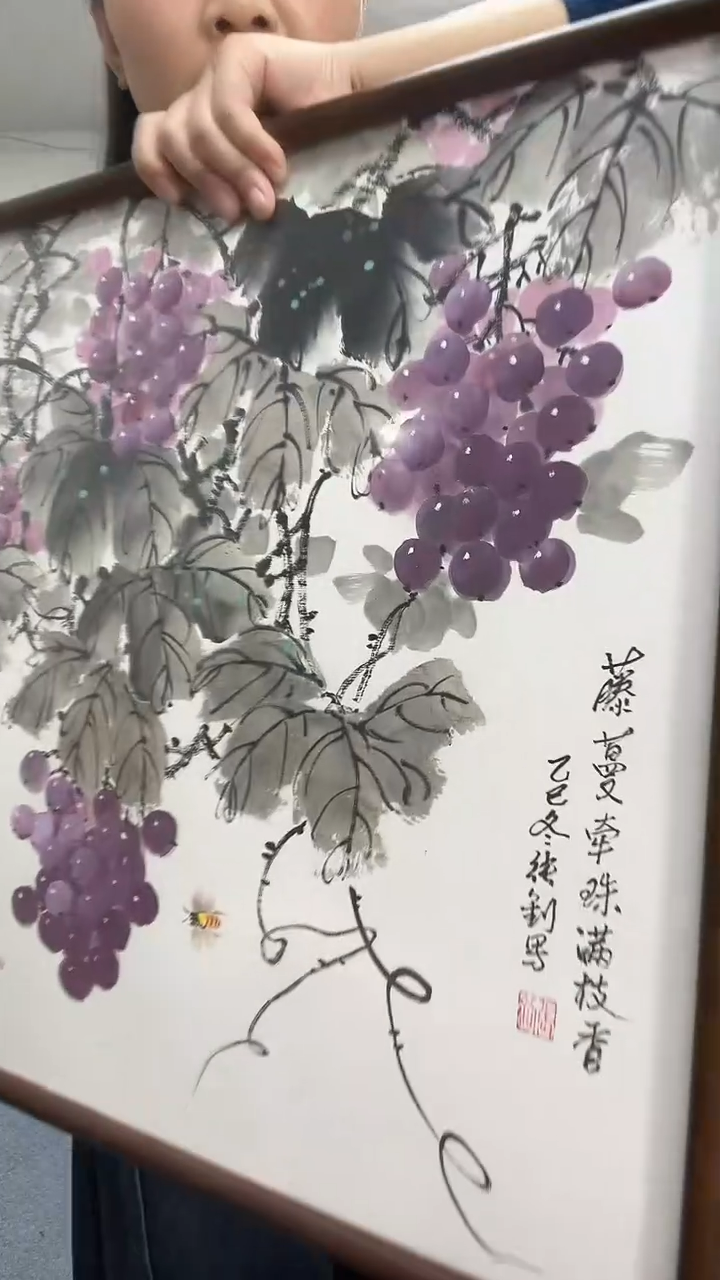 藤蔓牵珠满枝香
乙巳冬张钊写